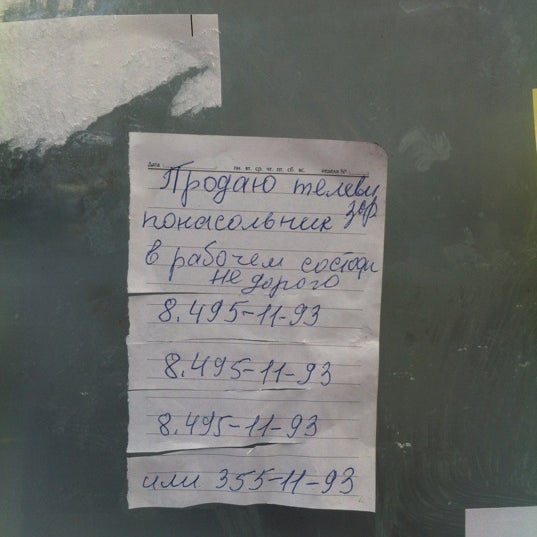 Дата пн. вт. ср. чт. пт. сб. вс. неделя №
Продаю телеви
зор
понасольник
в рабочем состоян
не дорого
8.495-11-93
8.495-11-93
8.495-11-93
или 355-11-93